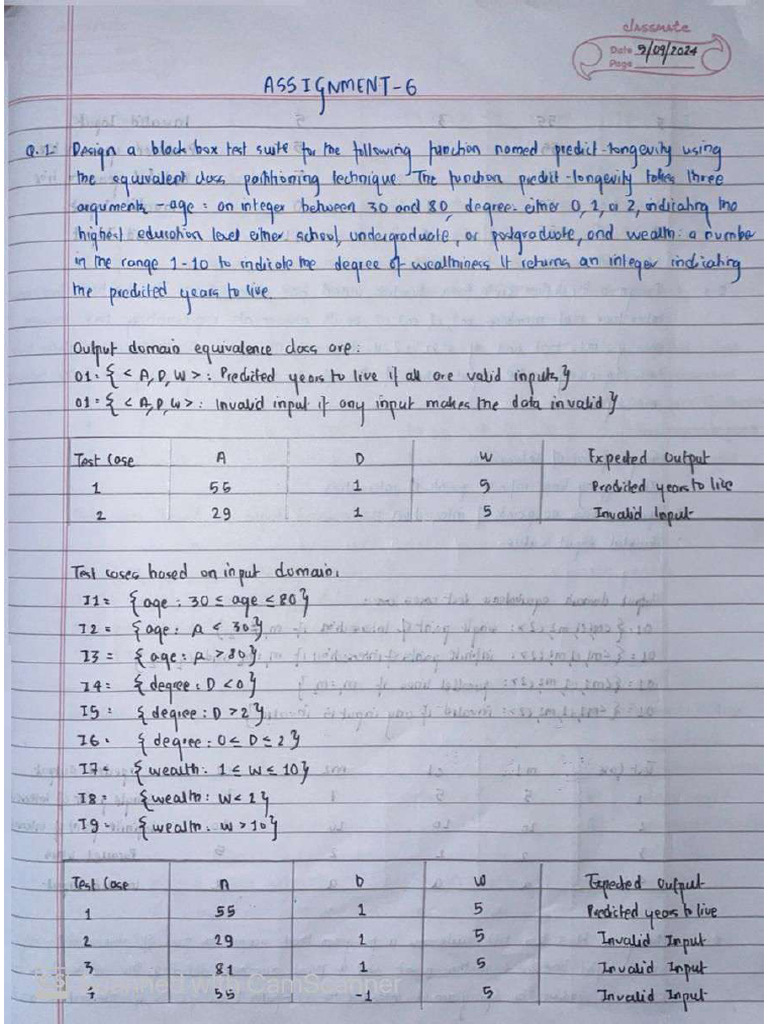 classmate
Date 9/09/2024
Page
ASSIGNMENT-6
Q.1 Design a black box test suite for the following function named predict-longevity using
the equivalent class partitioning technique. The function predict-longevity takes three
arguments - age: an integer between 30 and 80, degree: either 0, 1, or 2, indicating the
highest education level either school, undergraduate, or postgraduate, and wealth: a number
in the range 1-10 to indicate the degree of wealthiness It returns an integer indicating
the predicted years to live.
Output domain equivalence class are:
O1 = { < A, D, W > : Predicted years to live if all are valid inputs }
O1 = { < A, D, W > : Invalid input if any input makes the data invalid }
Test Case A D W Expected Output
1 55 1 5 Predicted years to live
2 29 1 5 Invalid Input
Test cases based on input domain:
I1 = { age : 30 ≤ age ≤ 80 }
I2 = { age : A < 30 }
I3 = { age : A > 80 }
I4 = { degree : D < 0 }
I5 = { degree : D > 2 }
I6 = { degree : 0 ≤ D ≤ 2 }
I7 = { wealth : 1 ≤ W ≤ 10 }
I8 = { wealth : W < 2 }
I9 = { wealth : W > 10 }
Test Case A D W Expected Output
1 55 1 5 Predicted years to live
2 29 1 5 Invalid Input
3 81 1 5 Invalid Input
4 55 -1 5 Invalid Input
Scanned with CamScanner